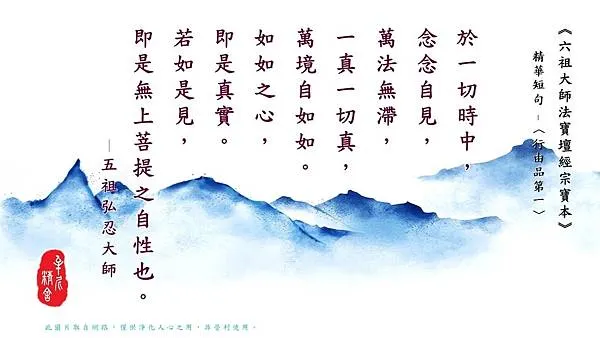 《六祖大師法寶壇經宗寶本》
精華短句－〈行由品第一〉
於一切時中，
念念自見，
萬法無滯，
一真一切真，
萬境自如如。
如如之心，
即是真實。
若如是見，
即是無上菩提之自性也。
—五祖弘忍大師
精舍
此圖片取自網路，僅供淨化人心之用，非營利使用。